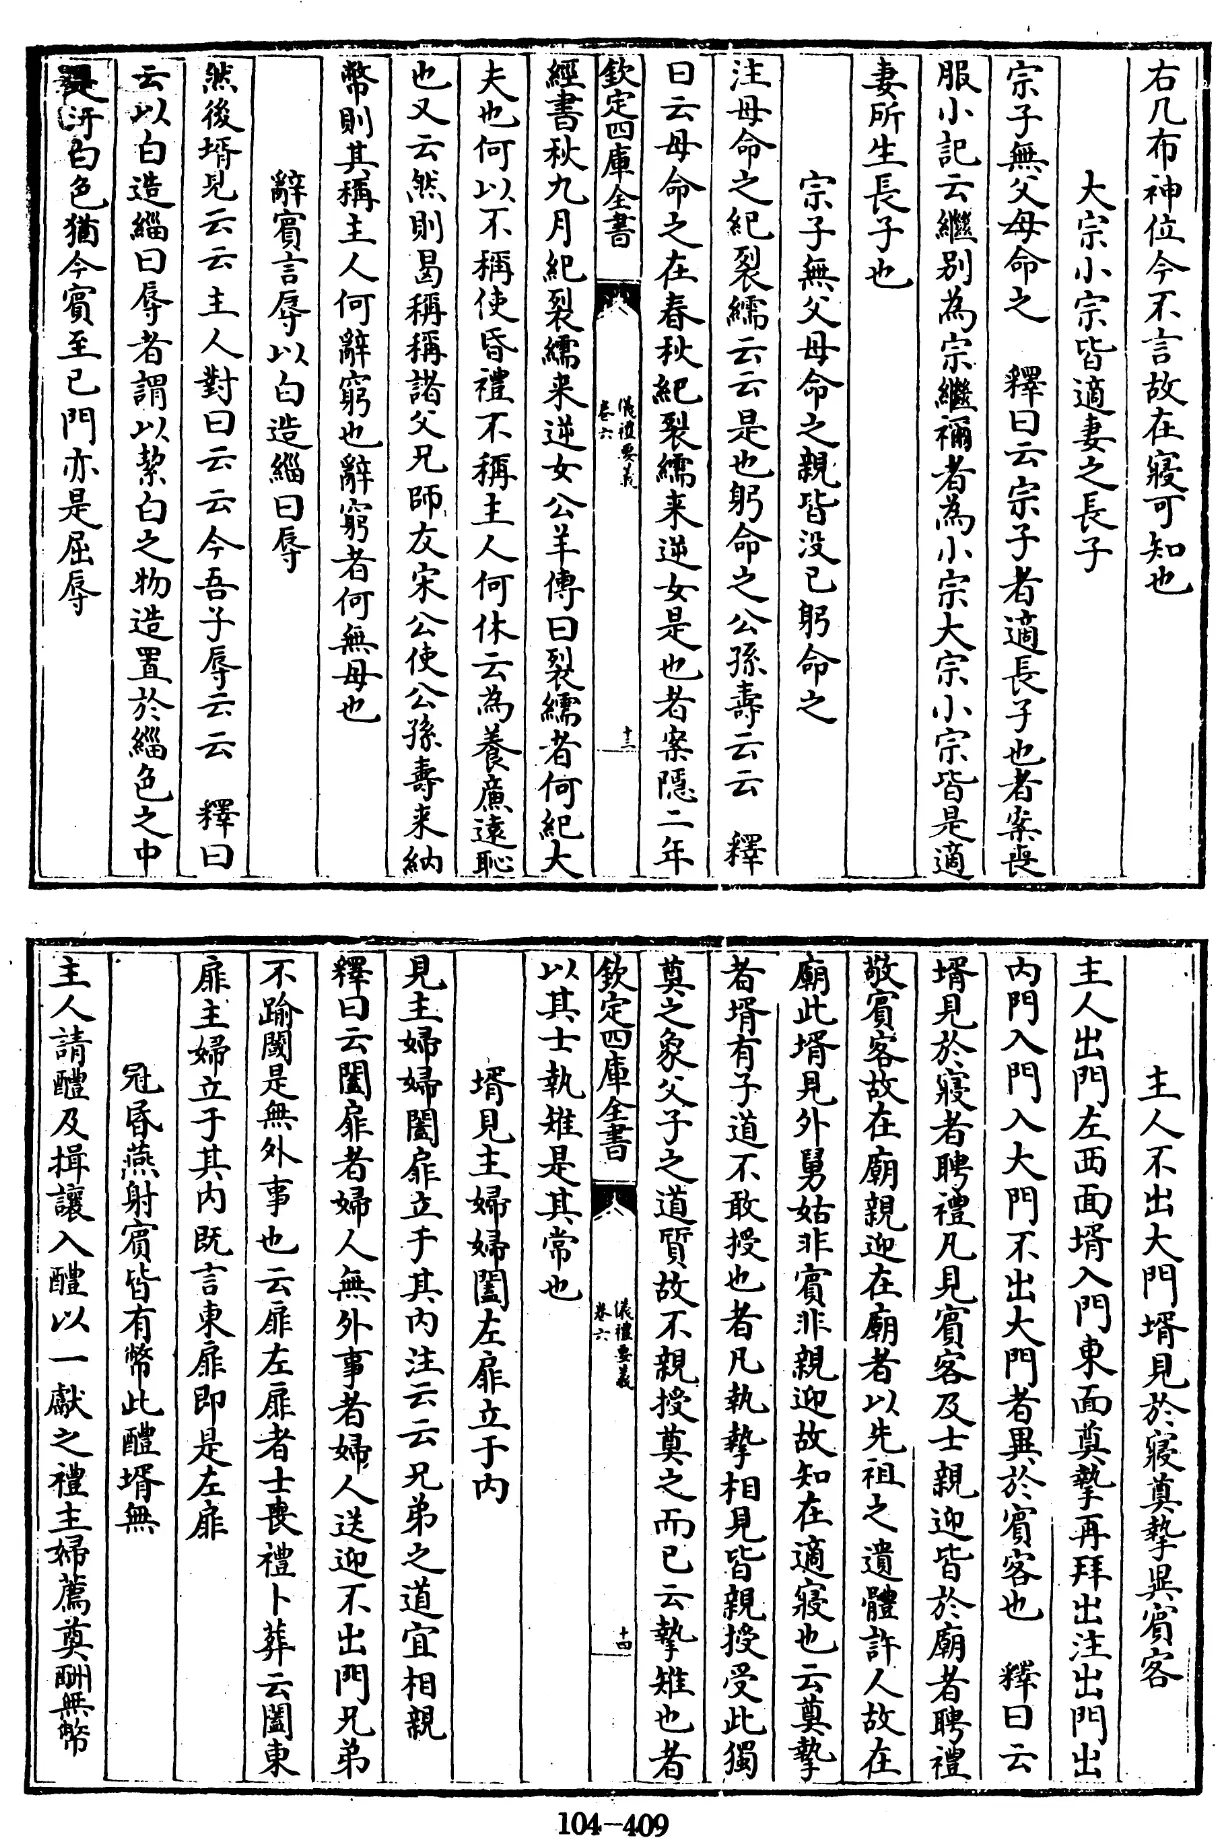 右几布神位今不言故在寢可知也
大宗小宗皆適妻之長子
宗子無父母命之　釋曰云宗子者適長子也者案喪
服小記云繼別為宗繼禰者為小宗大宗小宗皆是適
妻所生長子也
宗子無父母命之親皆没已躬命之
注母命之紀裂繻云云是也躬命之公孫壽云云　釋
曰云母命之在春秋紀裂繻来逆女是也者案隱二年
欽定四庫全書
儀禮要義
卷六
十三
經書秋九月紀裂繻来逆女公羊傳曰裂繻者何紀大
夫也何以不稱使昏禮不稱主人何休云為養廉逺恥
也又云然則曷稱稱諸父兄師友宋公使公孫壽来納
幣則其稱主人何辭窮也辭窮者何無母也
辭賓言辱以白造緇曰辱
然後壻見云云主人對曰云云今吾子辱云云　釋曰
云以白造緇曰辱者謂以絜白之物造置於緇色之中
是汙白色猶今賓至已門亦是屈辱
主人不出大門壻見於寢奠摯異賓客
主人出門左西面壻入門東面奠摯再拜出注出門出
内門入門入大門不出大門者異於賓客也　釋曰云
壻見於寢者聘禮凡見賓客及士親迎皆於廟者聘禮
敬賓客故在廟親迎在廟者以先祖之遺體許人故在
廟此壻見外舅姑非賓非親迎故知在適寢也云奠摯
者壻有子道不敢授也者凡執摯相見皆親授受此獨
奠之象父子之道質故不親授奠之而已云摯雉也者
欽定四庫全書
儀禮要義
卷六
十四
以其士執雉是其常也
壻見主婦婦闔左扉立于内
見主婦婦闔扉立于其内注云云兄弟之道宜相親
釋曰云闔扉者婦人無外事者婦人送迎不出門兄弟
不踰閾是無外事也云扉左扉者士喪禮卜葬云闔東
扉主婦立于其内既言東扉即是左扉
冠昏燕射賓皆有幣此醴壻無
主人請醴及揖讓入醴以一獻之禮主婦薦奠酬無幣
104-409